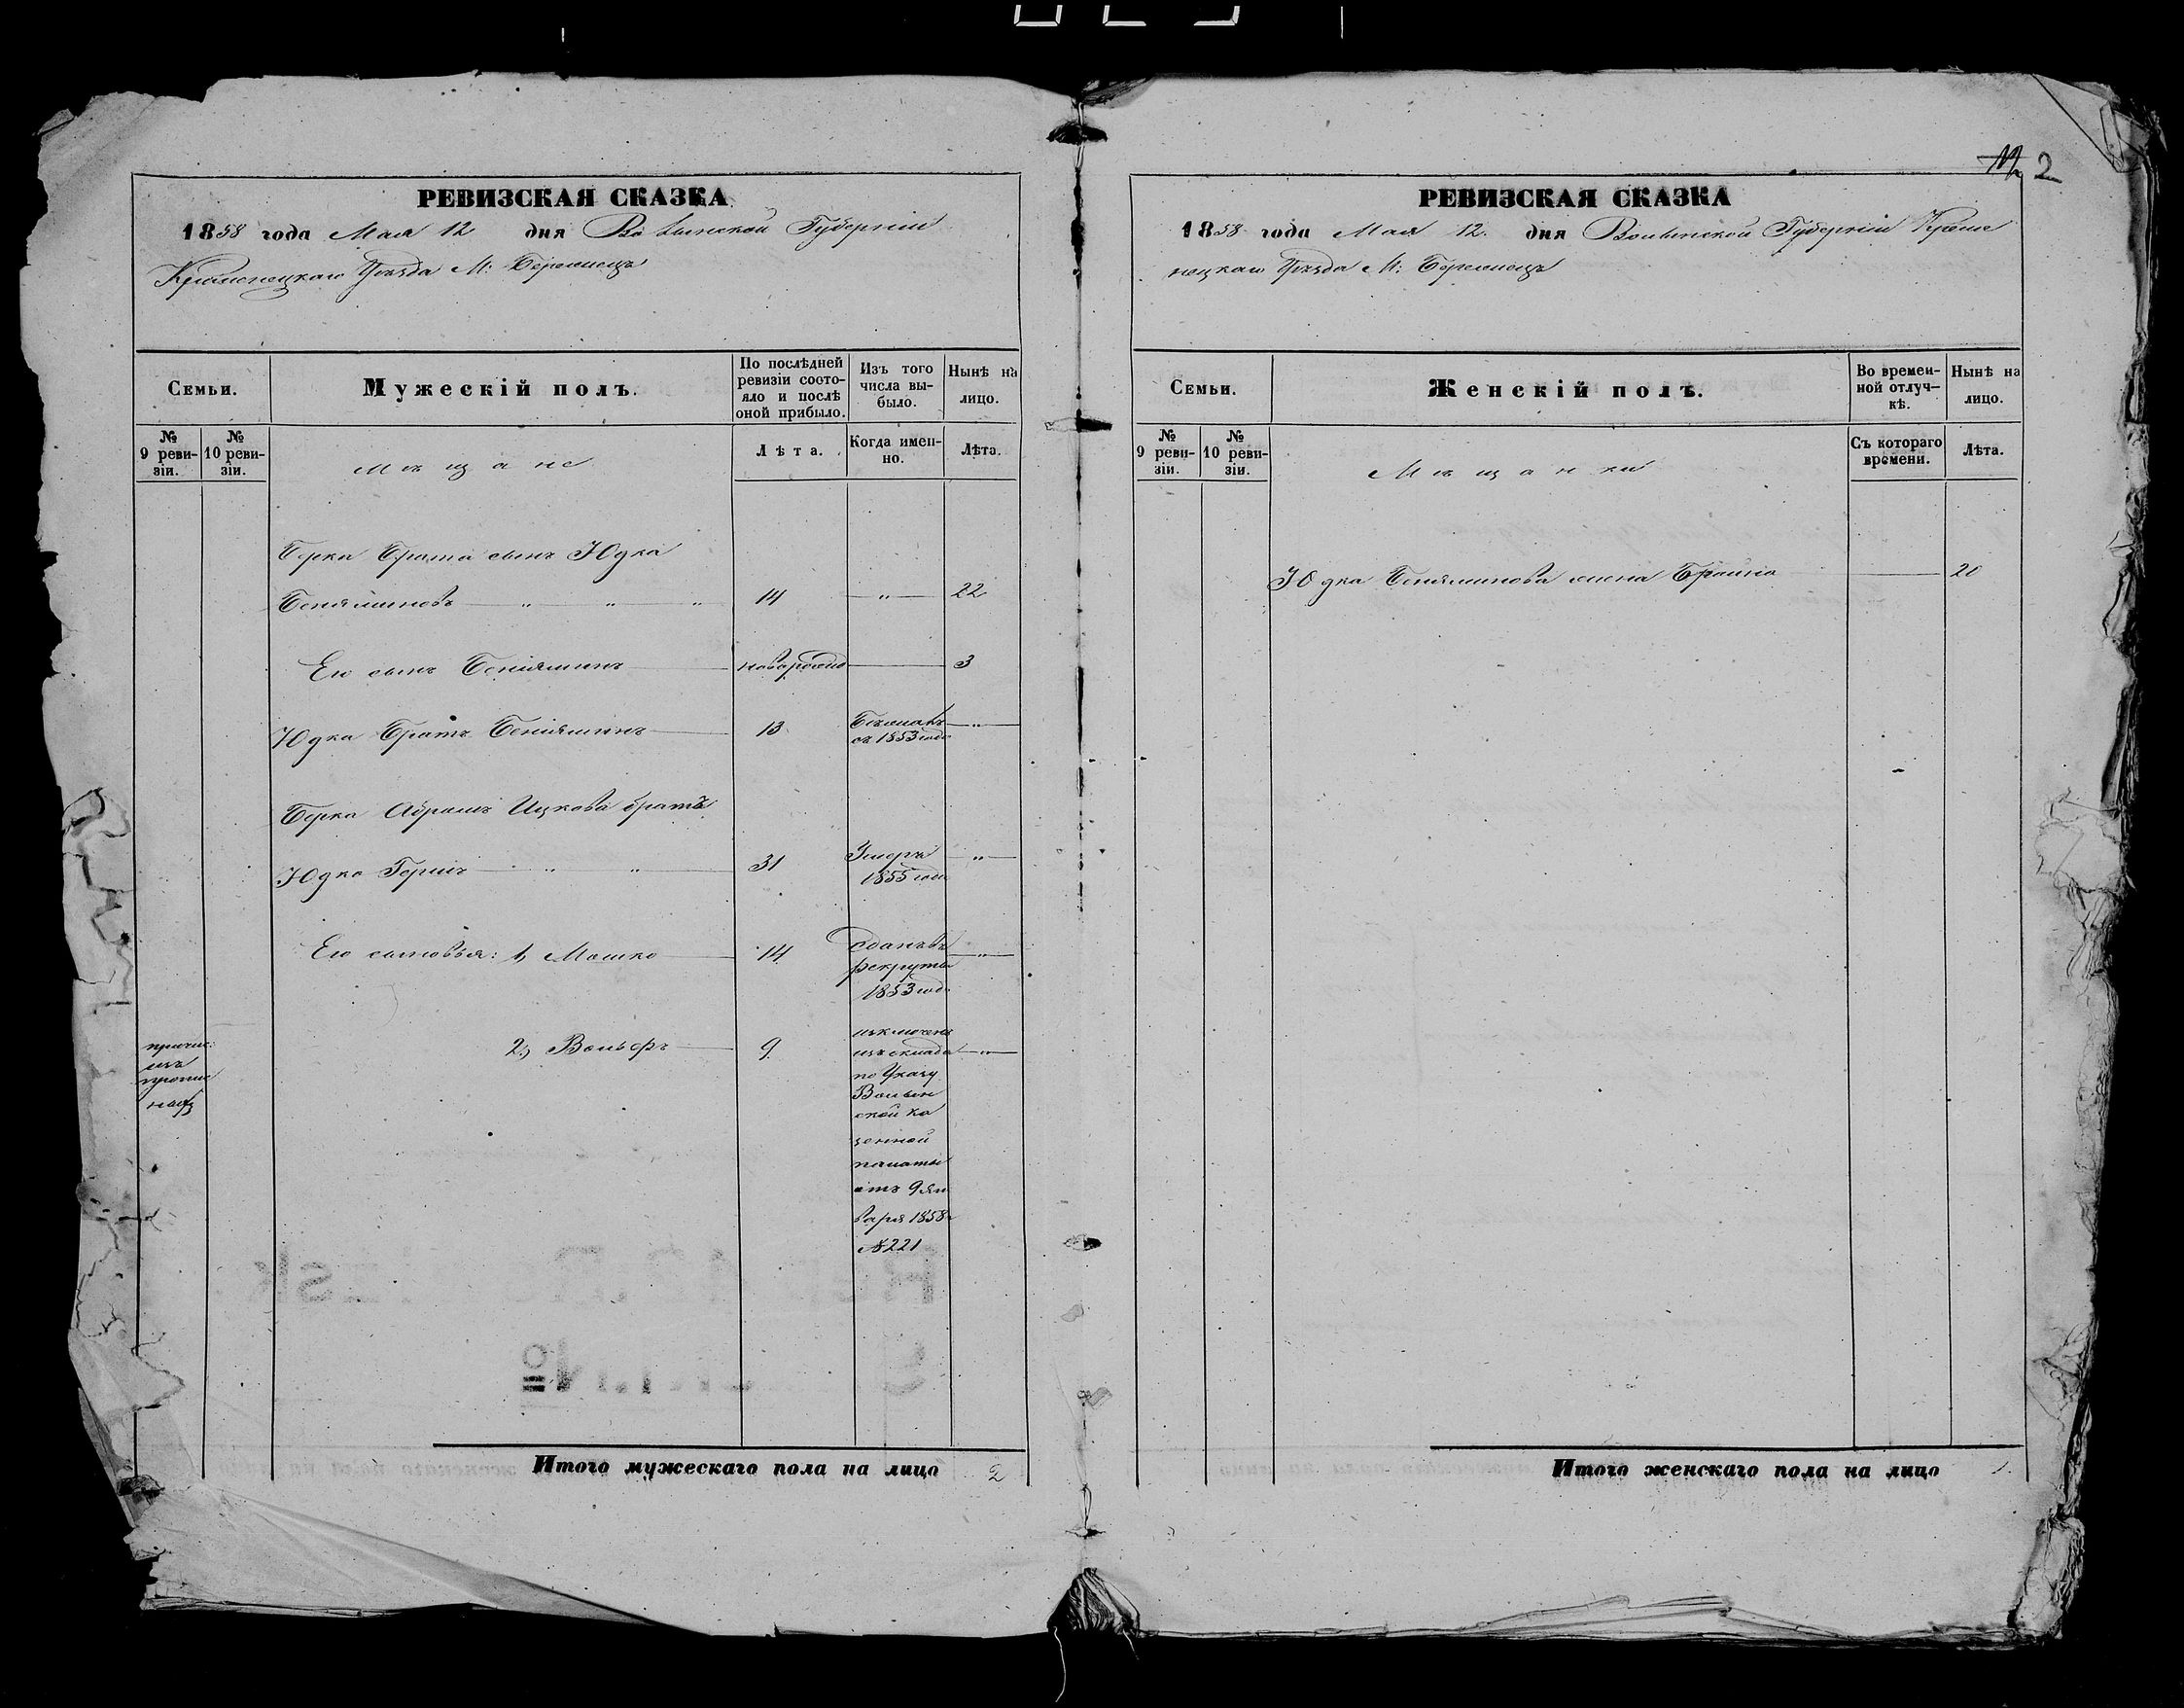 2
РЕВИЗСКАЯ СКАЗКА
1858 года Мая 12 дня Волынской Губерніи
Кременецкаго Уѣзда М: Бережецъ
Семьи.
Мужескій полъ.
По послѣдней ревизіи состо-
яло и послѣ
оной прибыло.
Изъ того
числа вы-
было.
Нынѣ на
лицо.
№
9 реви-
зіи.
№
10 реви-
зіи.
Мѣщане
Лѣта.
Когда имен-
но.
Лѣта.
Берка Брата сынъ Юдка
Беніяминовъ — " — " — " 14 — " — 22
Его сынъ Беніяминъ — новорожд — 3
Юдка Братъ Беніяминъ — 13 Бѣжалъ — " —
съ 1853 года
Берка Абрамъ Ицкова братъ
Юдко Гершъ — " " — 31 Умеръ — " —
1855 года
Его сыновья: 1, Мошко — 14 сданъ въ
рекруты — " —
1853 года
2, Вольфъ — 9 изключенъ
изъ оклада — " —
по Указу
Волын
ской Ка
зенной
палаты
отъ 9 Ян
варя 1858
№ 221
причис:
изъ
Итого мужескаго пола на лицо 2
РЕВИЗСКАЯ СКАЗКА
1858 года Мая 12. дня Волынской Губерніи Креме
нецкаго Уѣзда М: Бережецъ
Семьи.
Женскій полъ.
Во времен-
ной отлуч-
кѣ.
Нынѣ на
лицо.
№
9 реви-
зіи.
№
10 реви-
зіи.
Мѣщанки
Съ котораго
времени.
Лѣта.
Юдка Беніяминова жена Брайна — 20
Итого женскаго пола на лицо 1.